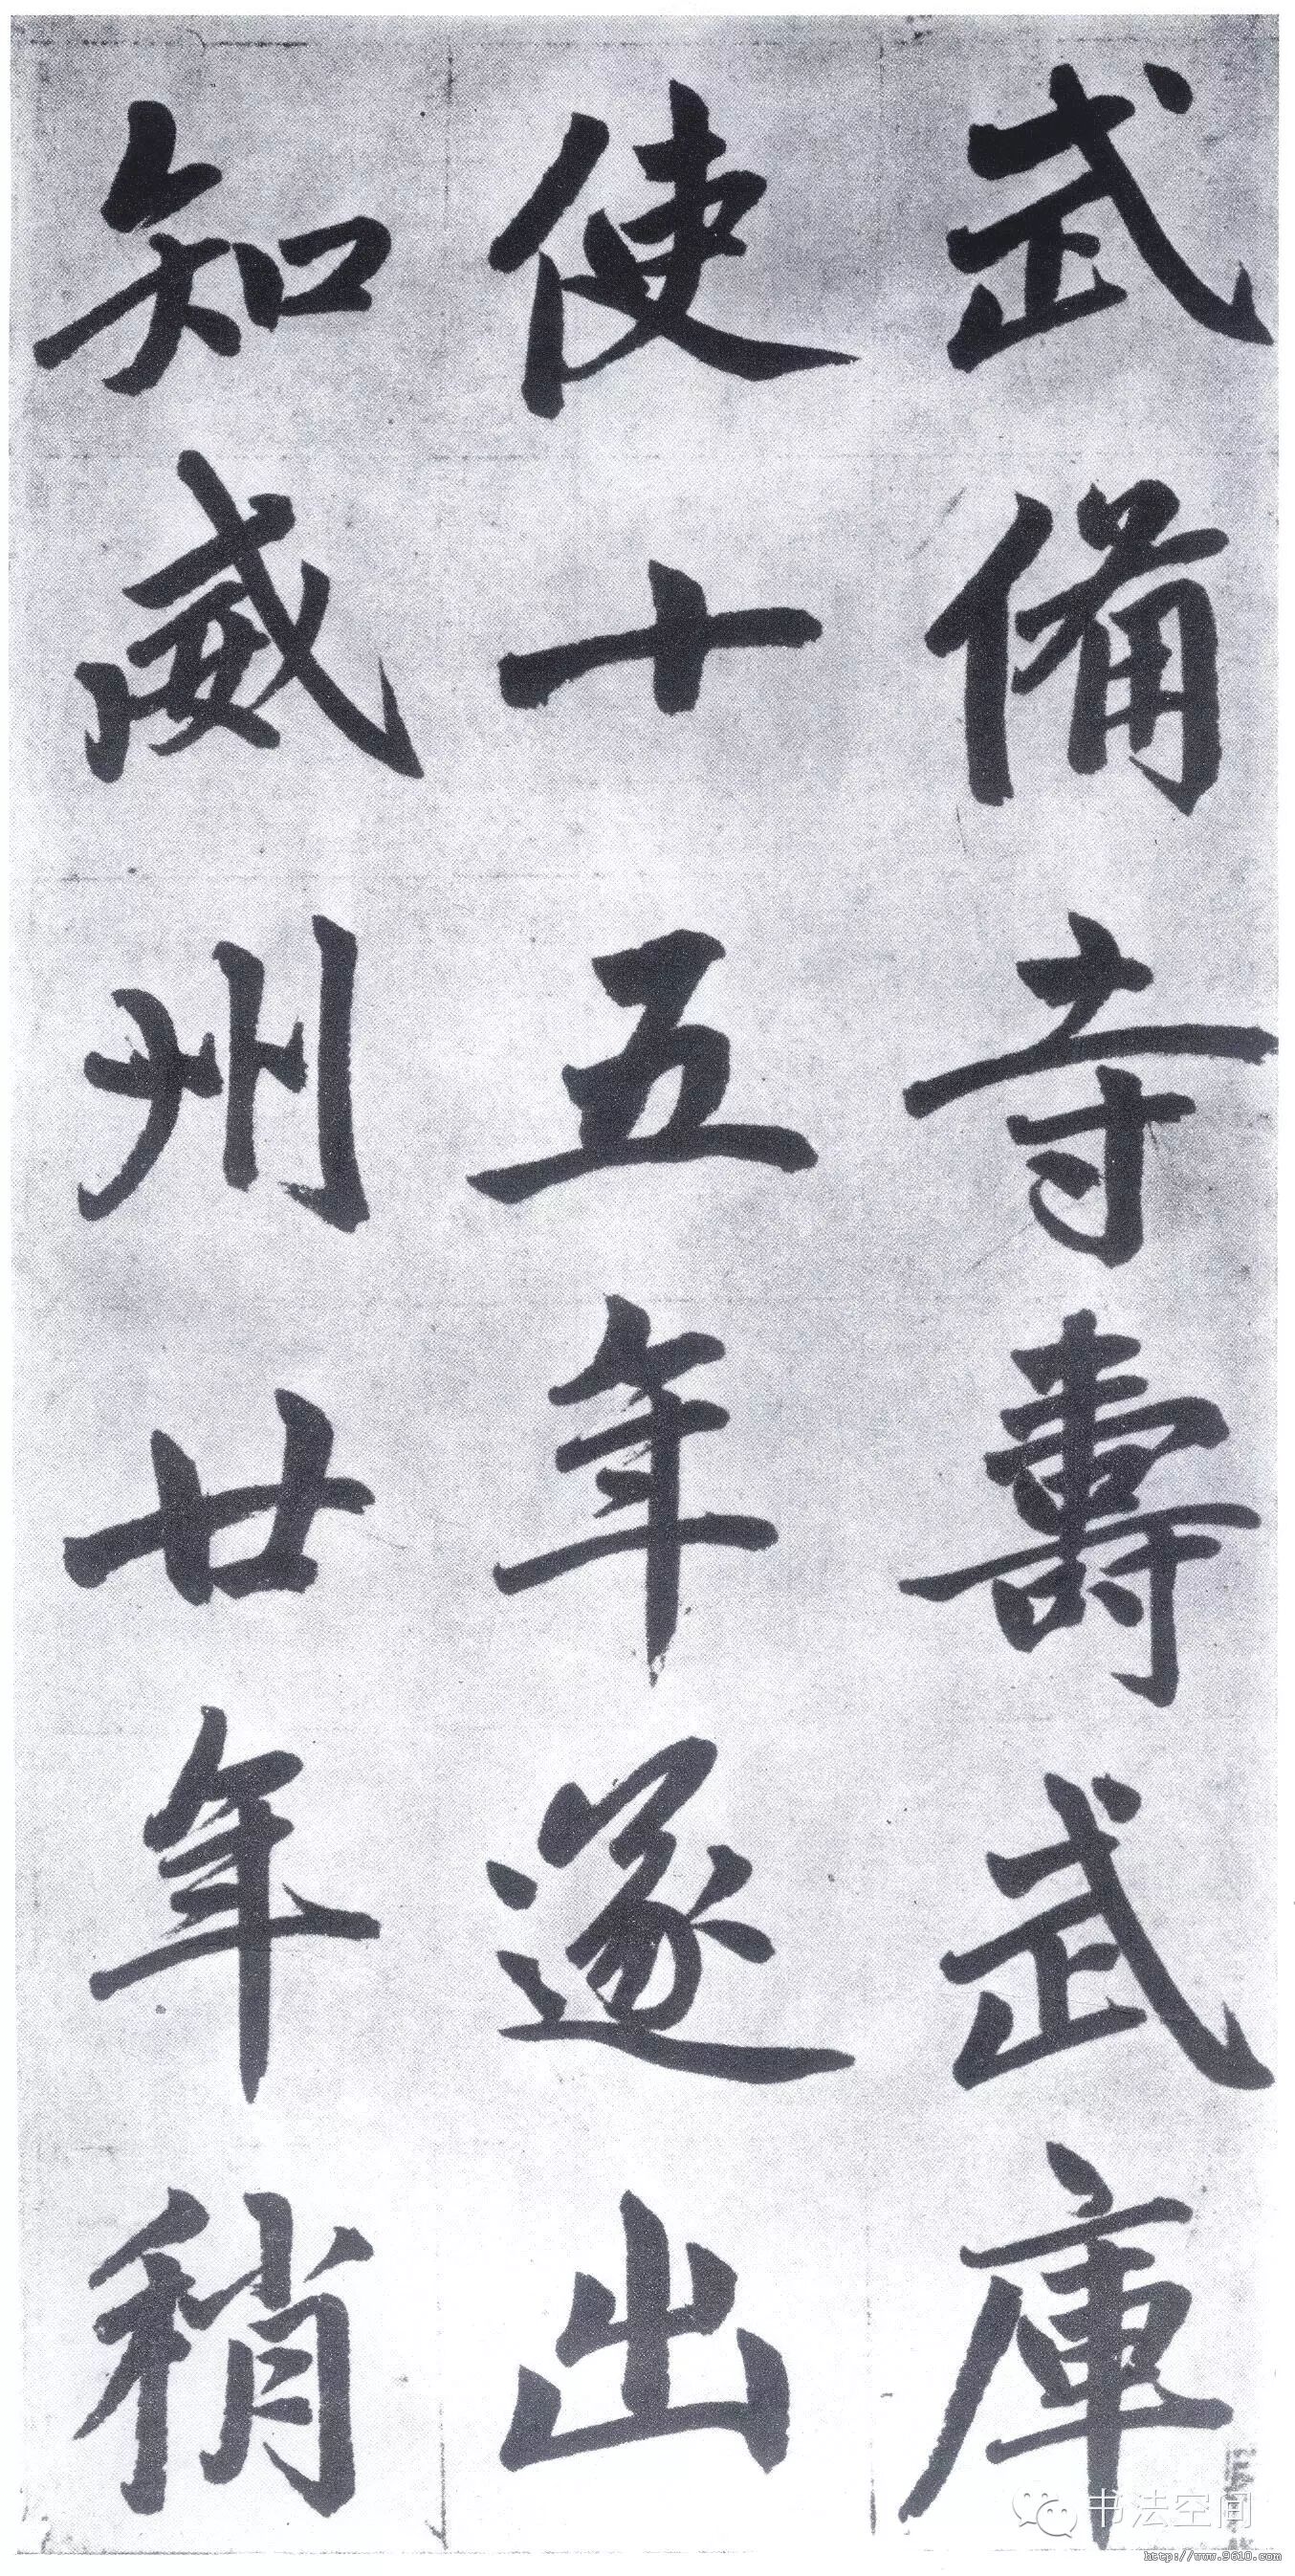 武備寺壽武庫
使十五年遂出
知威州廿年稍
书法空间
http://www.9610.com